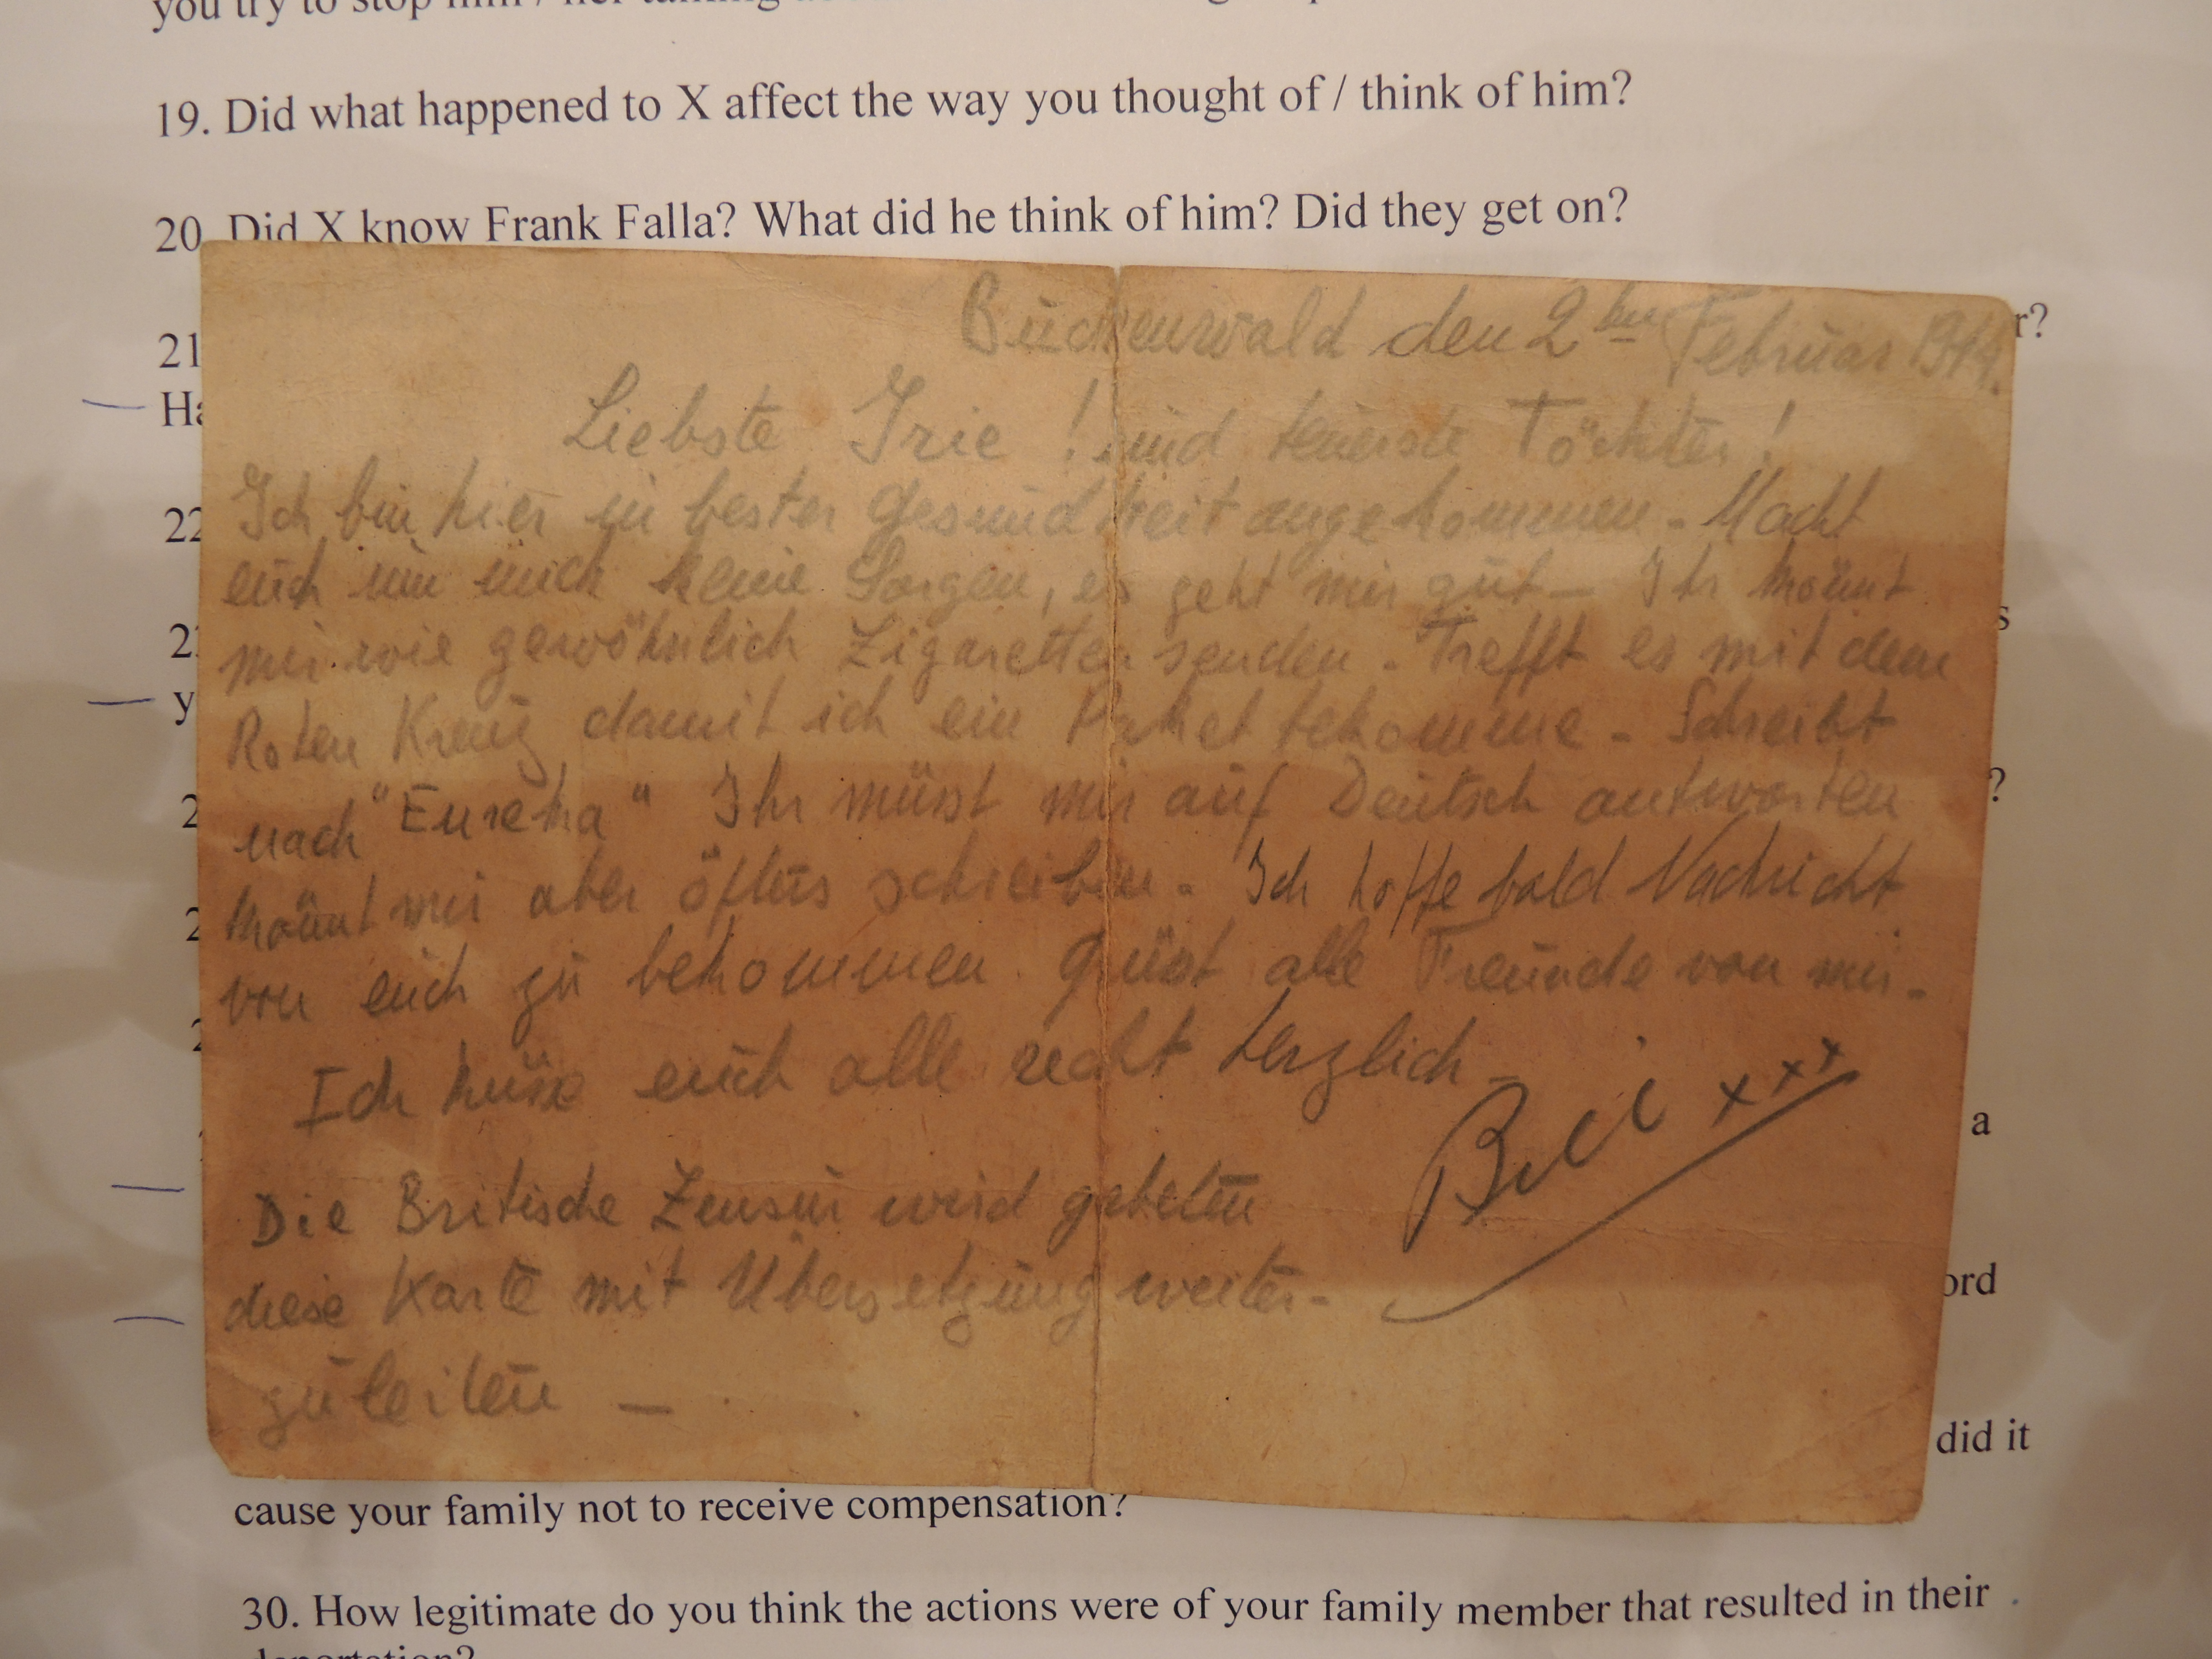 you try to stop him / her talking
19. Did what happened to X affect the way you thought of / think of him?
20. Did X know Frank Falla? What did he think of him? Did they get on?
21
r?
Ha
22
s
y
?
a
ord
did it
Buchenwald den 2ten Februar 1944.
Liebste Irie ! und teuerste Töchter !
Ich bin hier in bester Gesundheit angekommen - Macht
euch um mich keine Sorgen, es geht mir gut - Ihr könnt
mir wie gewöhnlich Zigaretten senden - Trefft es mit dem
Roten Kreuz damit ich ein Paket bekomme - Schreibt
nach "Eureka" Ihr müsst mir auf Deutsch antworten
könnt mir aber öfters schreiben - Ich hoffe bald Nachricht
von euch zu bekommen. Grüsst alle Freunde von mir -
Ich küsse euch alle recht herzlich -
xxx
Die Britische Zensur wird gebeten
diese Karte mit Übersetzung weiter-
zuleiten —
cause your family not to receive compensation?
30. How legitimate do you think the actions were of your family member that resulted in their
deportation?